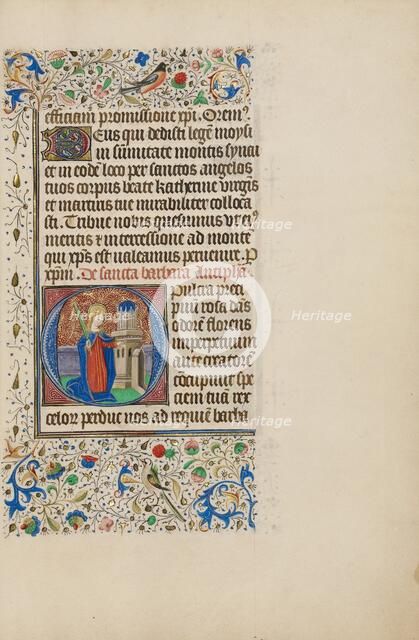 efficiam promissione xpi. Orem⁹
Deus qui dedisti legē moysi
in sūmitate montis synai
et in eodē loco per sanctos angelos
tuos corpus beate katherine virgīs
et martiris tue mirabiliter colloca
sti. Tribue nobis quesumus ut ei⁹
mentis et intercessione ad monte
qui xp̄s est ualeamus peruenire. P
xp̄m. De sancta barbara antiph̄a
Pulcra preci
puū rosa dan̄s
odorē florens
imperpetuum
ante creatorē
cōcupiuit spe
ciem tuā rex
celor perduc nos ad requiē barba
Heritage
Heritage
Heritage
Heritage